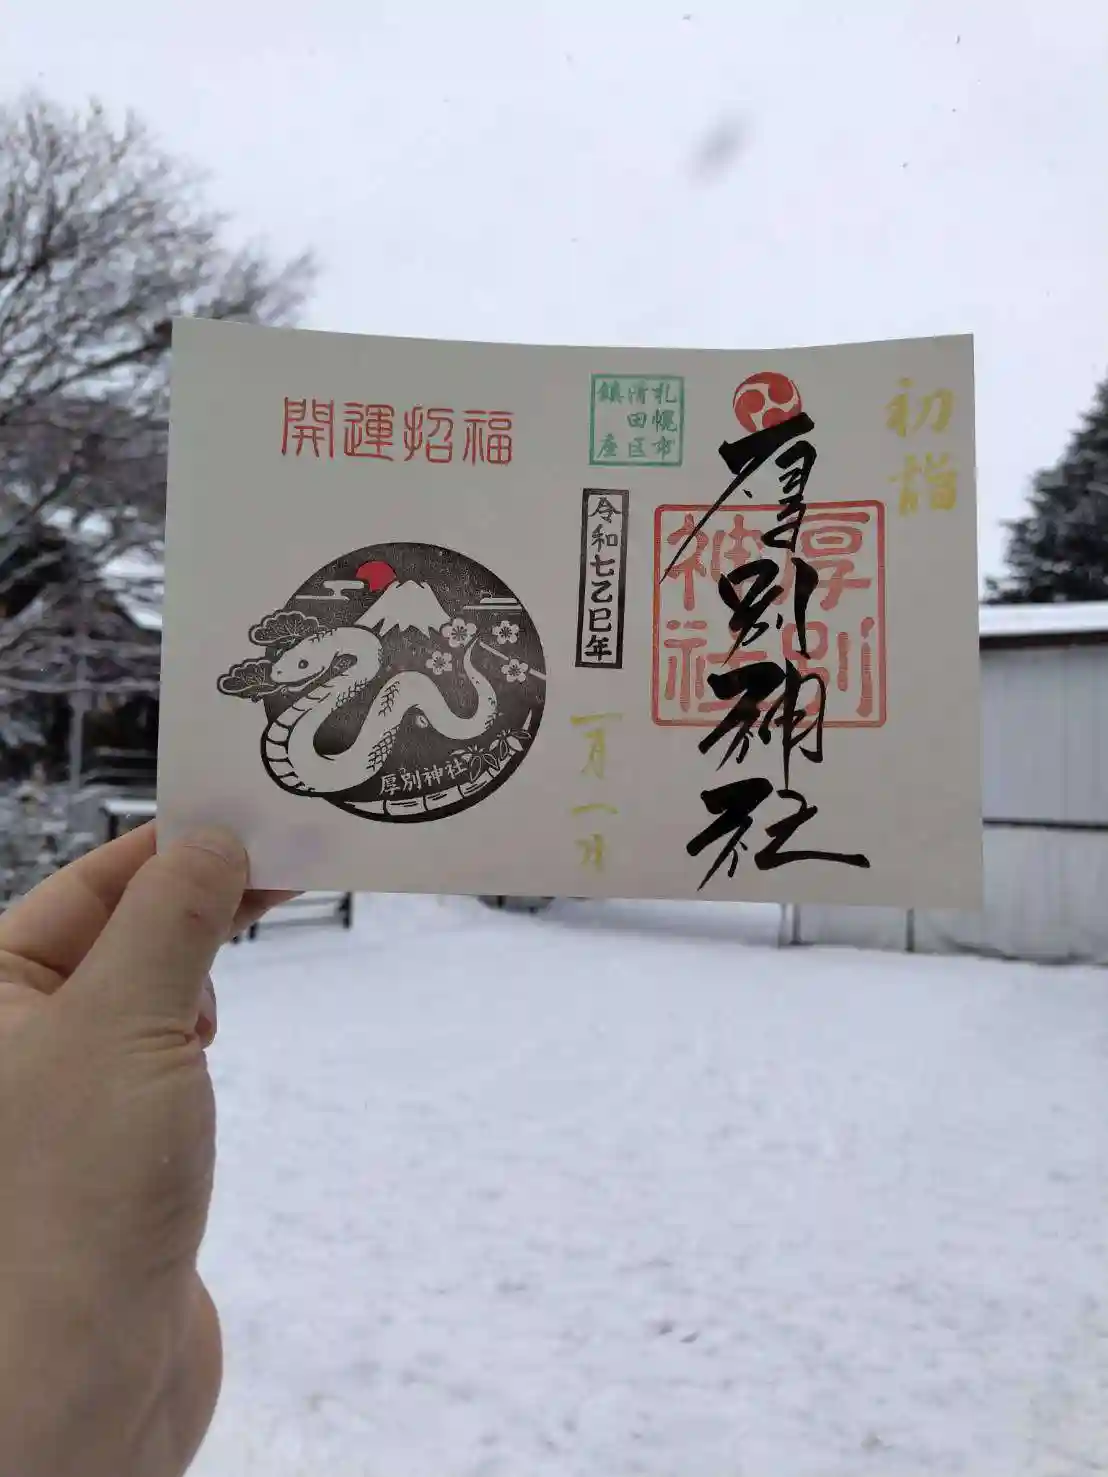 初詣
厚別神社
厚別神社
札幌市清田区鎮座
令和七乙巳年
一月一日
開運招福
厚別神社